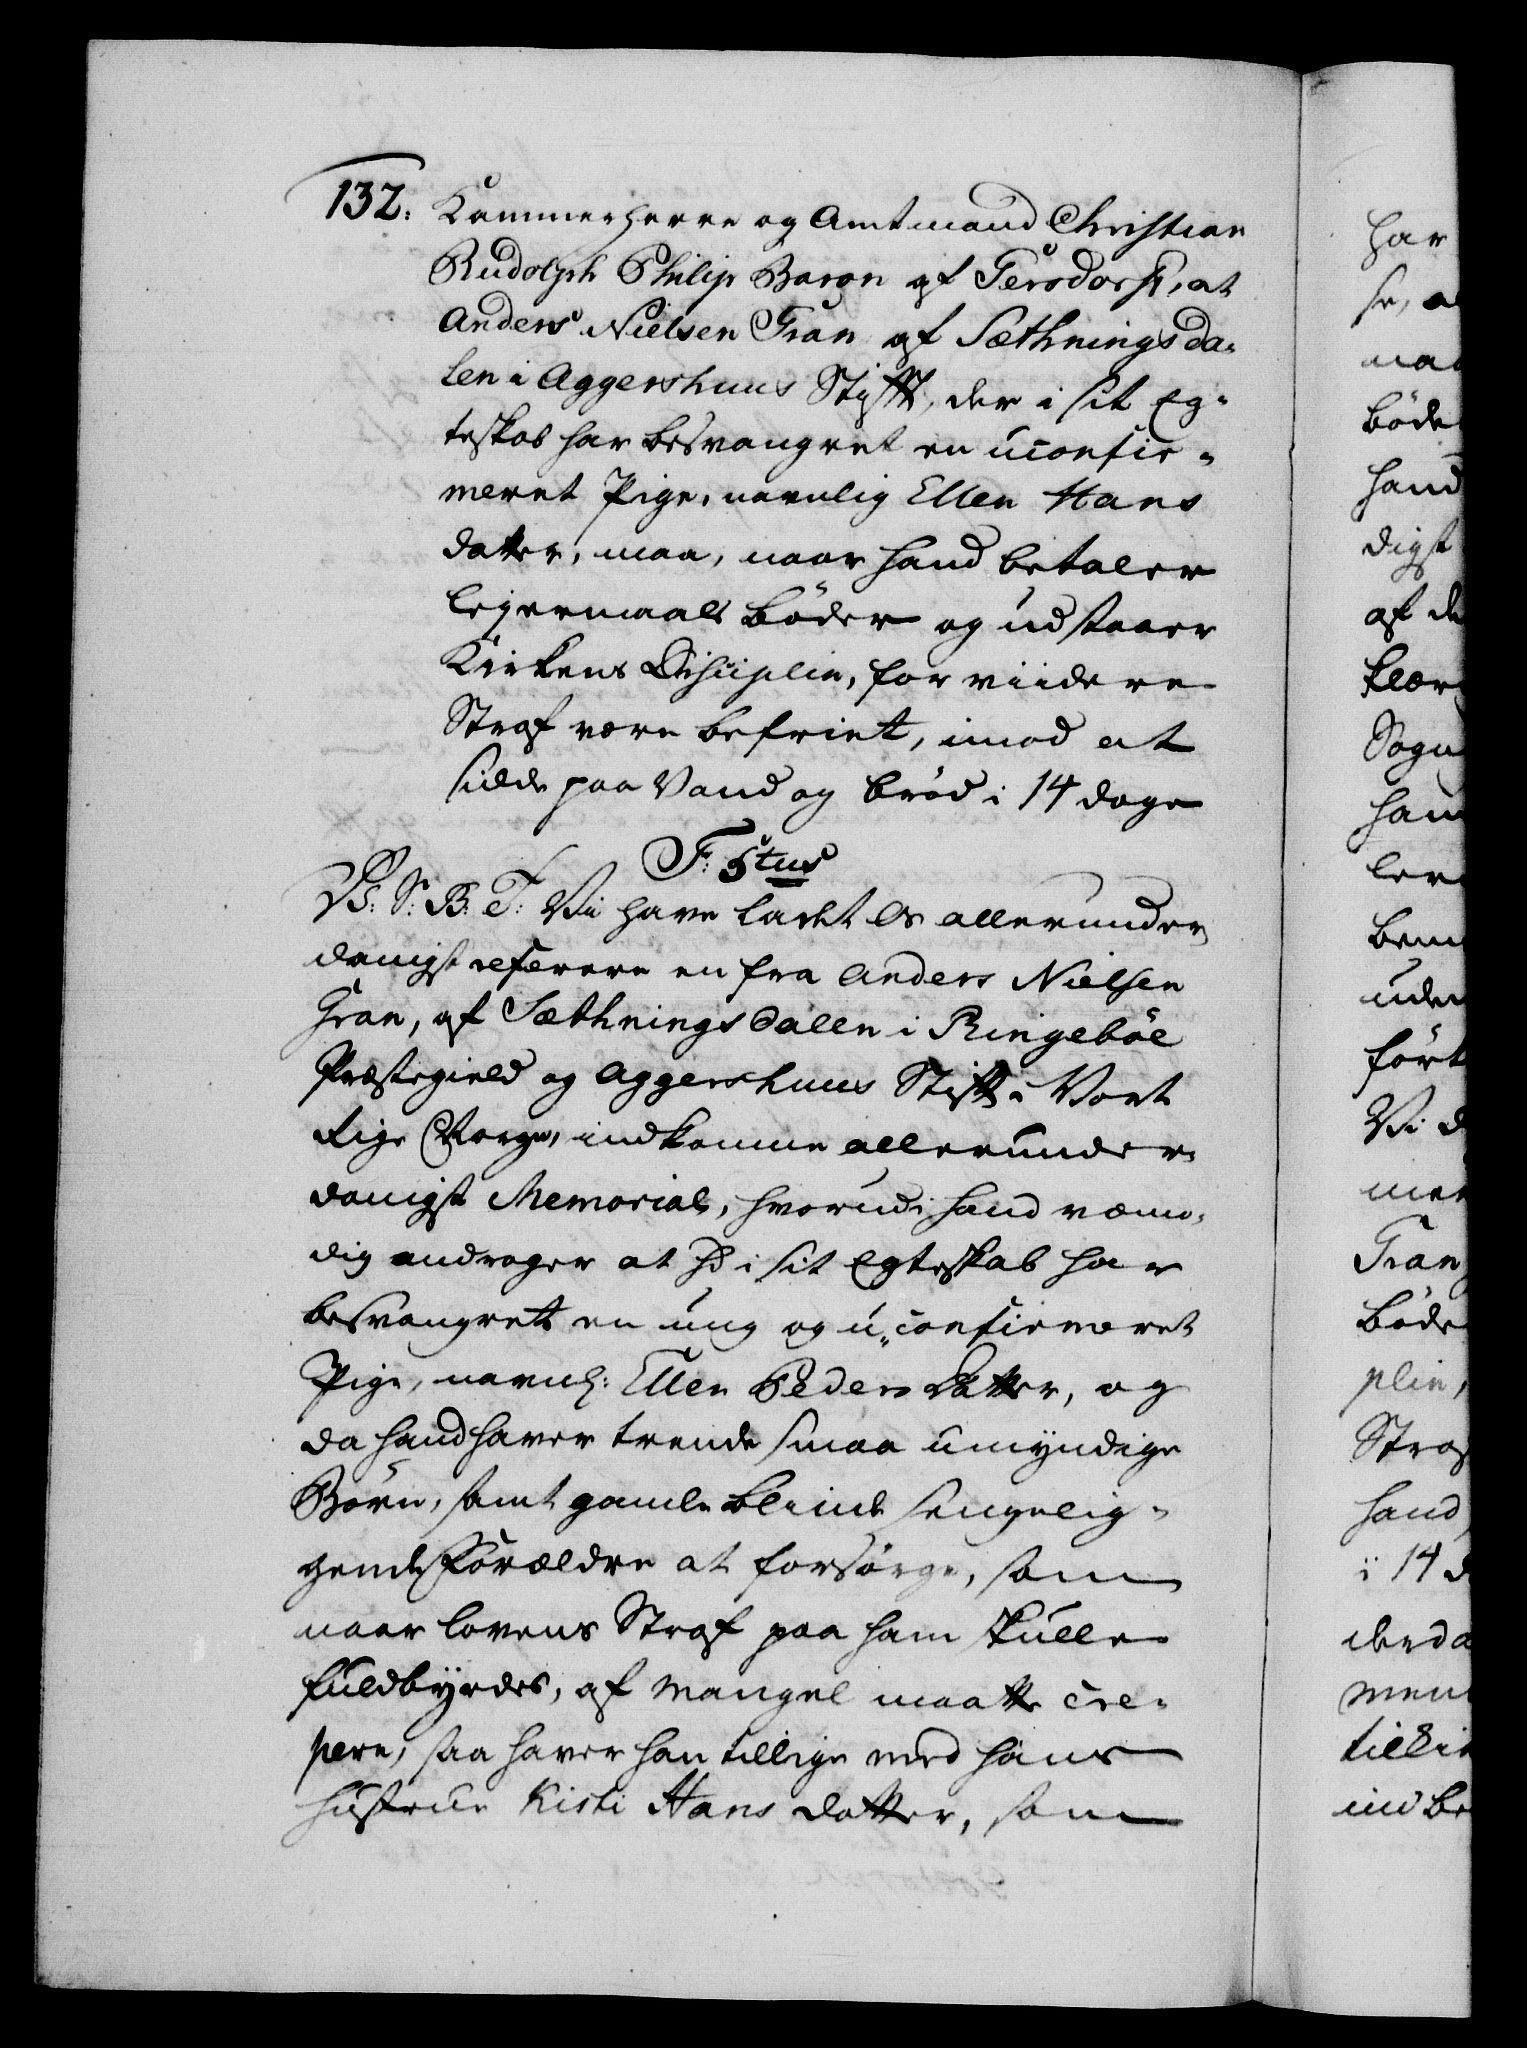 132. Kammerherre og Amtmand Christian
Rudolph Philip Baron af Gersdorff, at
Anders Nielsen Gran af Sæthningsda-
len i Aggershuus Stifft, der i sit Eg-
teskab har besvangret en uconfir-
meret Pige, navnlig Ellen Hans
datter, maa, naar hand betaler
Lejermaals Bøder og udstaaer
Kirkens Disciplin, for viidere
Straf være befriet, imod at
sidde paa Vand og brød i 14 dage
F: 5tus
V: S: B: T: Vi have ladet Os allerunder
danigst referere en fra Anders Nielsen
Gran, af Sæthningsdallen i Ringeböe
Præstegield og Aggershuus Stift i Vort
Rige Norge, indkomne allerunder-
danigst Memorial, hvorudi hand vemo-
dig andrager at Hd i sit Egteskab har
besvangret en ung og u-confirmeret
Pige, navnl: Ellen Peders Datter, og
da hand haver trende smaa umyndige
Børn, samt gamle blinde sengelig-
gende Forældre at forsørge, som
naar Lovens Straf paa ham skulle
fuldbyrdes, af Mangel maatte cre-
pere, saa haver han tillige med hans
Hustrue Kisti Hans datter, som
har
se, a
maa
böde
hand
digst
af de
klær
Sogn
ham
ler
bem
uden
ført
Vi d
men
Gran
Böde
plin,
Straf
hand
i 14 d
derda
men
tillii
ind be